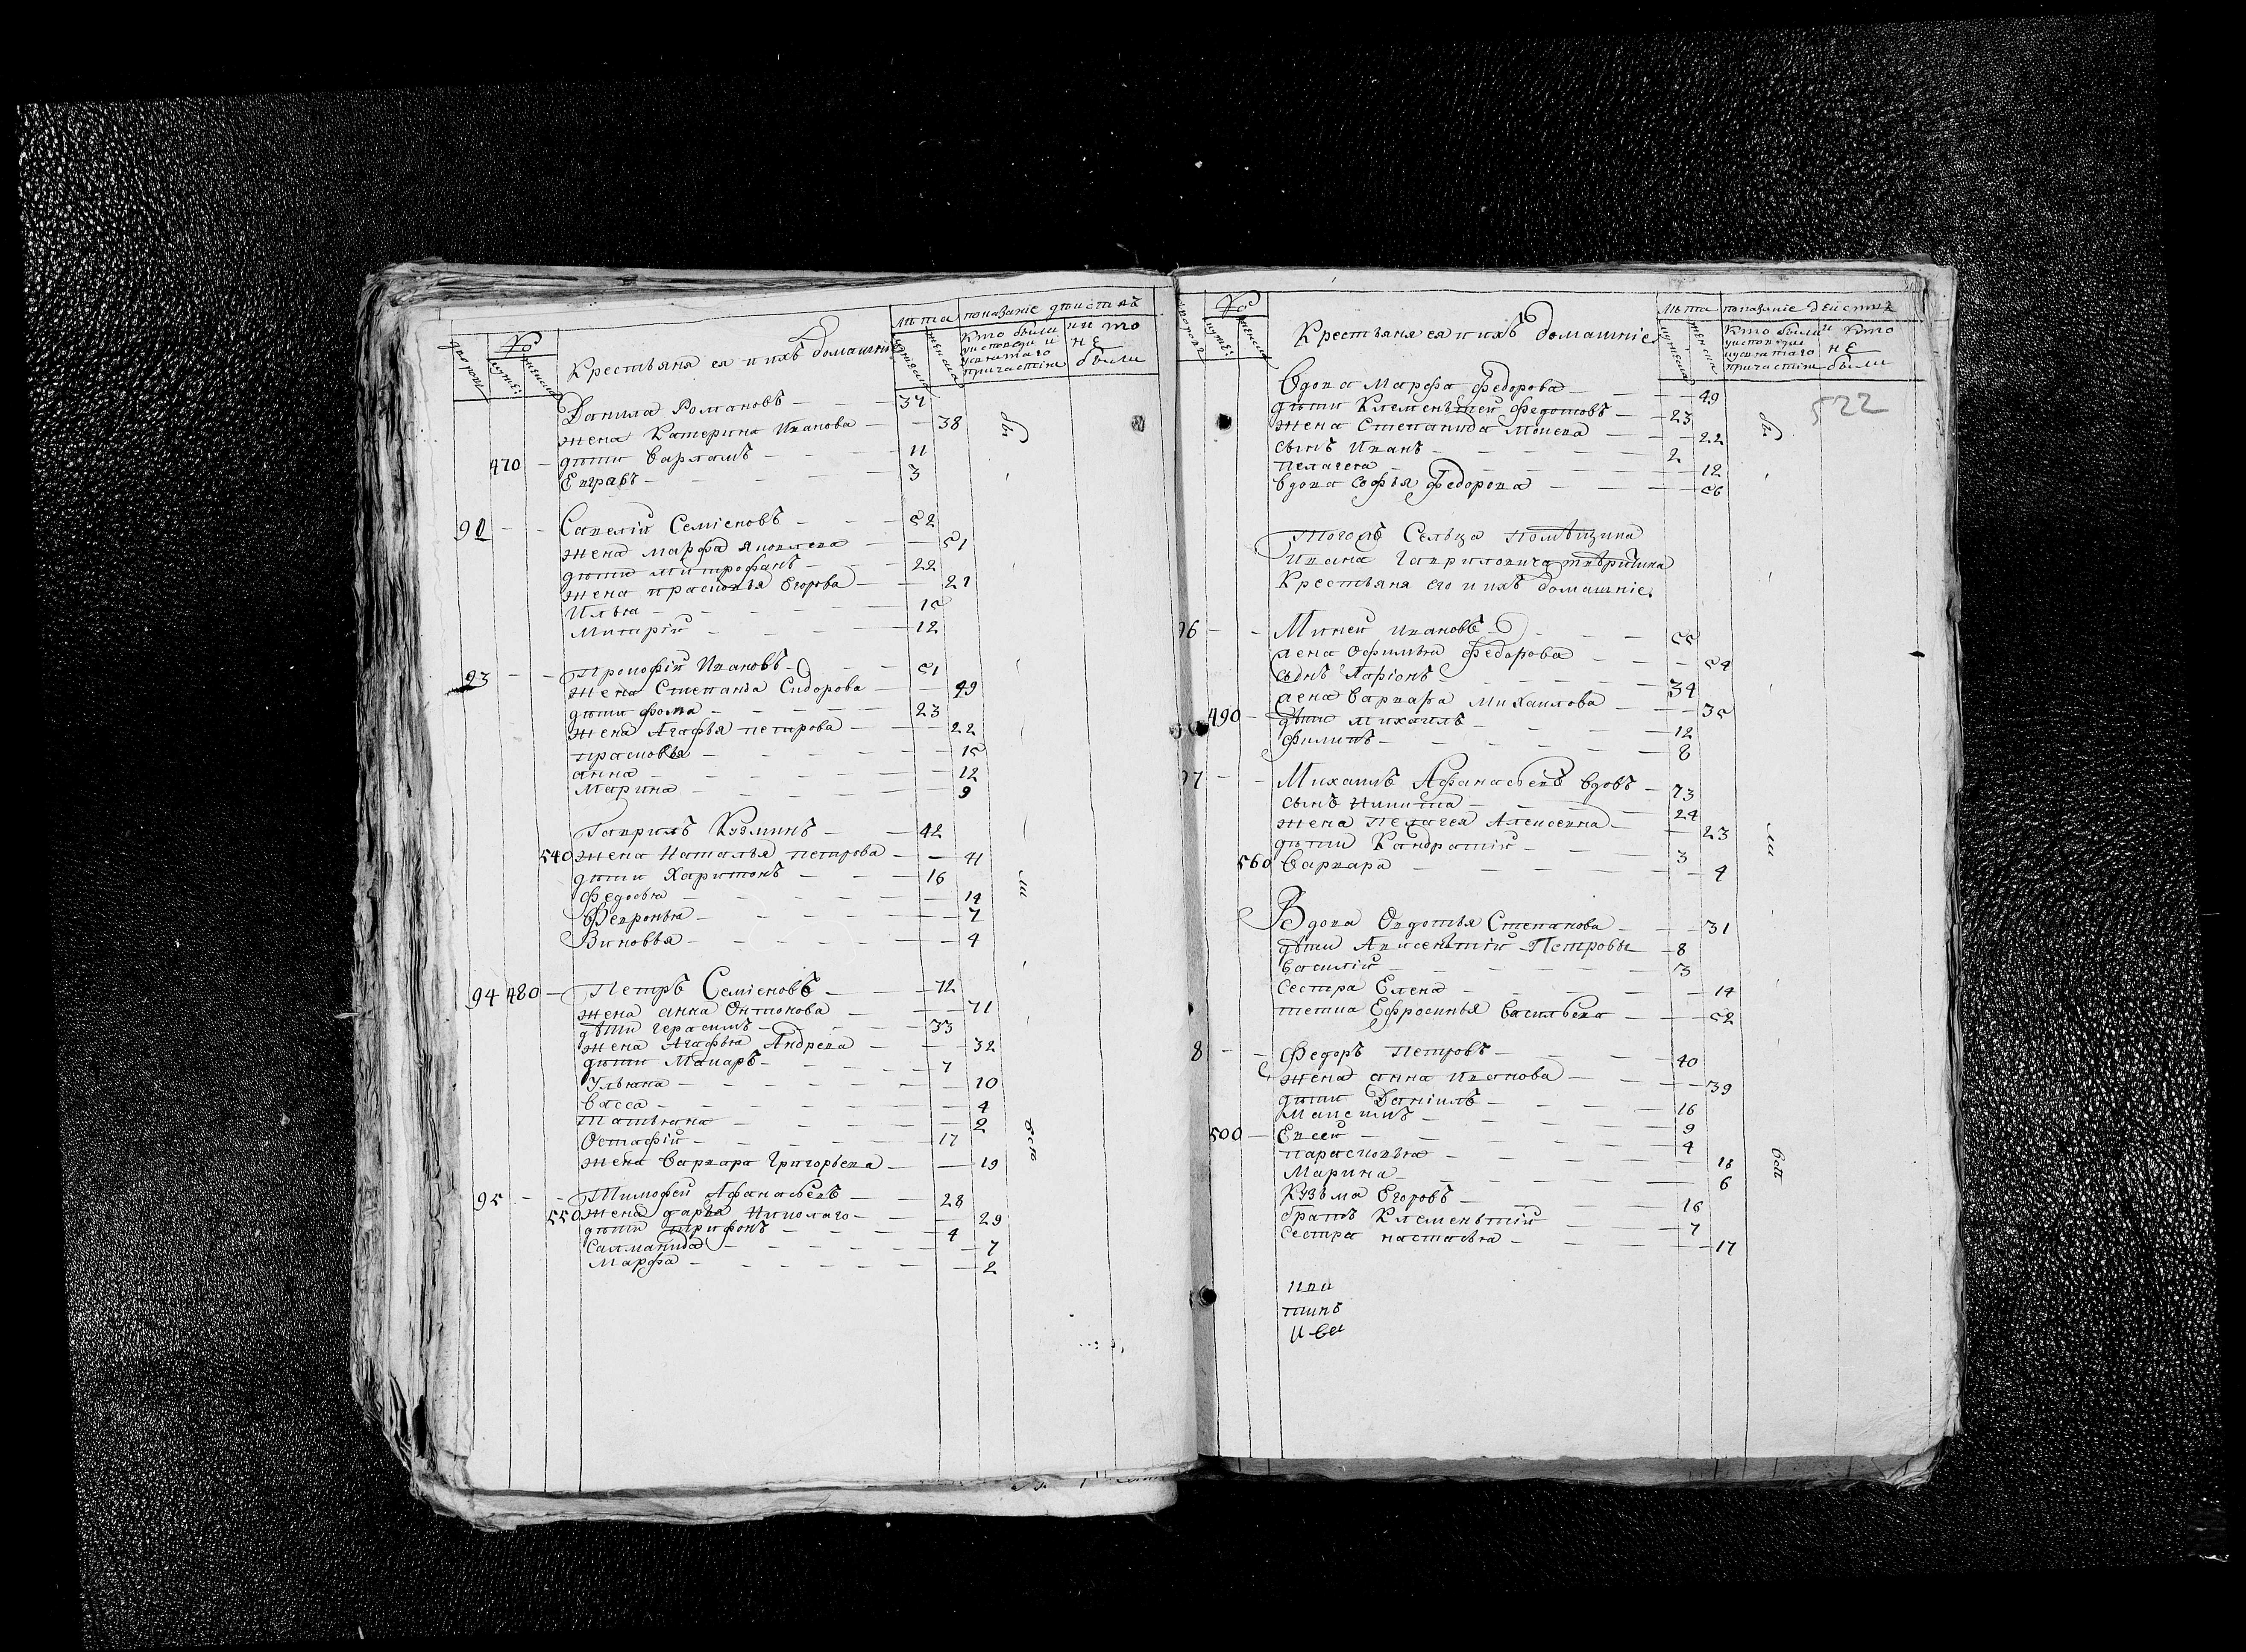 №
Лѣта показаніе дѣиства
дворовъ
мужес:
женска
Крестьяня ея и ихъ домашніе
мужеска
женска
Кто были
уисповеди и
усвятаго
причастія
и кто
не
были
Данила Романовъ — 37
жена Катерина Иванова — 38
470 — дѣти Варламъ — 11
Евграфъ — 3
Савелій Семіоновъ — 52
жена Марфа Яковлева — 51
дѣти Митрофанъ — 22
жена Прасковья Егорова — 21
Илья — 15
Митрій — 12
93 — Прокофій Ивановъ — 51
жена Степанида Сидорова — 49
дѣти Фома — 23
жена Агафья Петрова — 22
Прасковья — 15
Анна — 12
Марина — 9
Гаврилъ Кузминъ — 42
540 жена Наталья Петрова — 41
дѣти Харитонъ — 16
Федосья — 14
Февронья — 7
Зиновья — 4
94 480 — Петръ Семіоновъ — 72
жена Анна Онтонова — 71
дѣти Герасимъ — 33
жена Агафья Андрева — 32
дѣти Макаръ — 7
Ульяна — 10
Васса — 4
Татьяна — 2
Остафій — 17
жена Варвара Григорьева — 19
95 — Тимофей Афанасьевъ — 28
550 жена Дарья Николаго — 29
дѣти Трифонъ — 4
Саломанида — 7
Марфа — 2
бы
ли
всю
№
Лѣта показаніе дѣиства
Крестьяня ея и ихъ домашніе
мужеска
женска
Кто были
уисповеди
усвятаго
причастія
и кто
не
были
522
Вдова Марфа Федорова — 49
дѣти Клеменьтей Федотовъ — 23
жена Степанида Мокева — 22
сынъ Иванъ — 2
Пелагея — 12
Вдова Софья Федорова — 56
Тогожъ Сельца Помѣщика
Ивана Гавриловича
Крестьяня его и ихъ домашніе
96 — Миней Ивановъ — 55
жена Офимья Федорова — 54
сынъ Ларіонъ — 34
жена Варвара Михаилова — 35
490 — дѣти Михаилъ — 12
Филипъ — 8
97 — Михаилъ Афанасьевъ вдовъ — 73
сынъ Никита — 24
жена Пелагея Алексевна — 23
дѣти Кандратій — 3
560 Варвара — 4
Вдова Овдотья Степанова — 31
дѣти Авксеньтій Петровы — 8
Василій — 3
сестра Елена — 14
тетка Ефросинья Васильева — 52
8 — Федоръ Петровъ — 40
жена Анна Иванова — 39
дѣти Даніилъ — 16
Максимъ — 9
500 — Евсей — 4
Парасковья — 18
Марина — 6
Кузьма Егоровъ — 16
братъ Клеменьтій — 7
Сестра Настасья — 17
бы
ли
всѣ